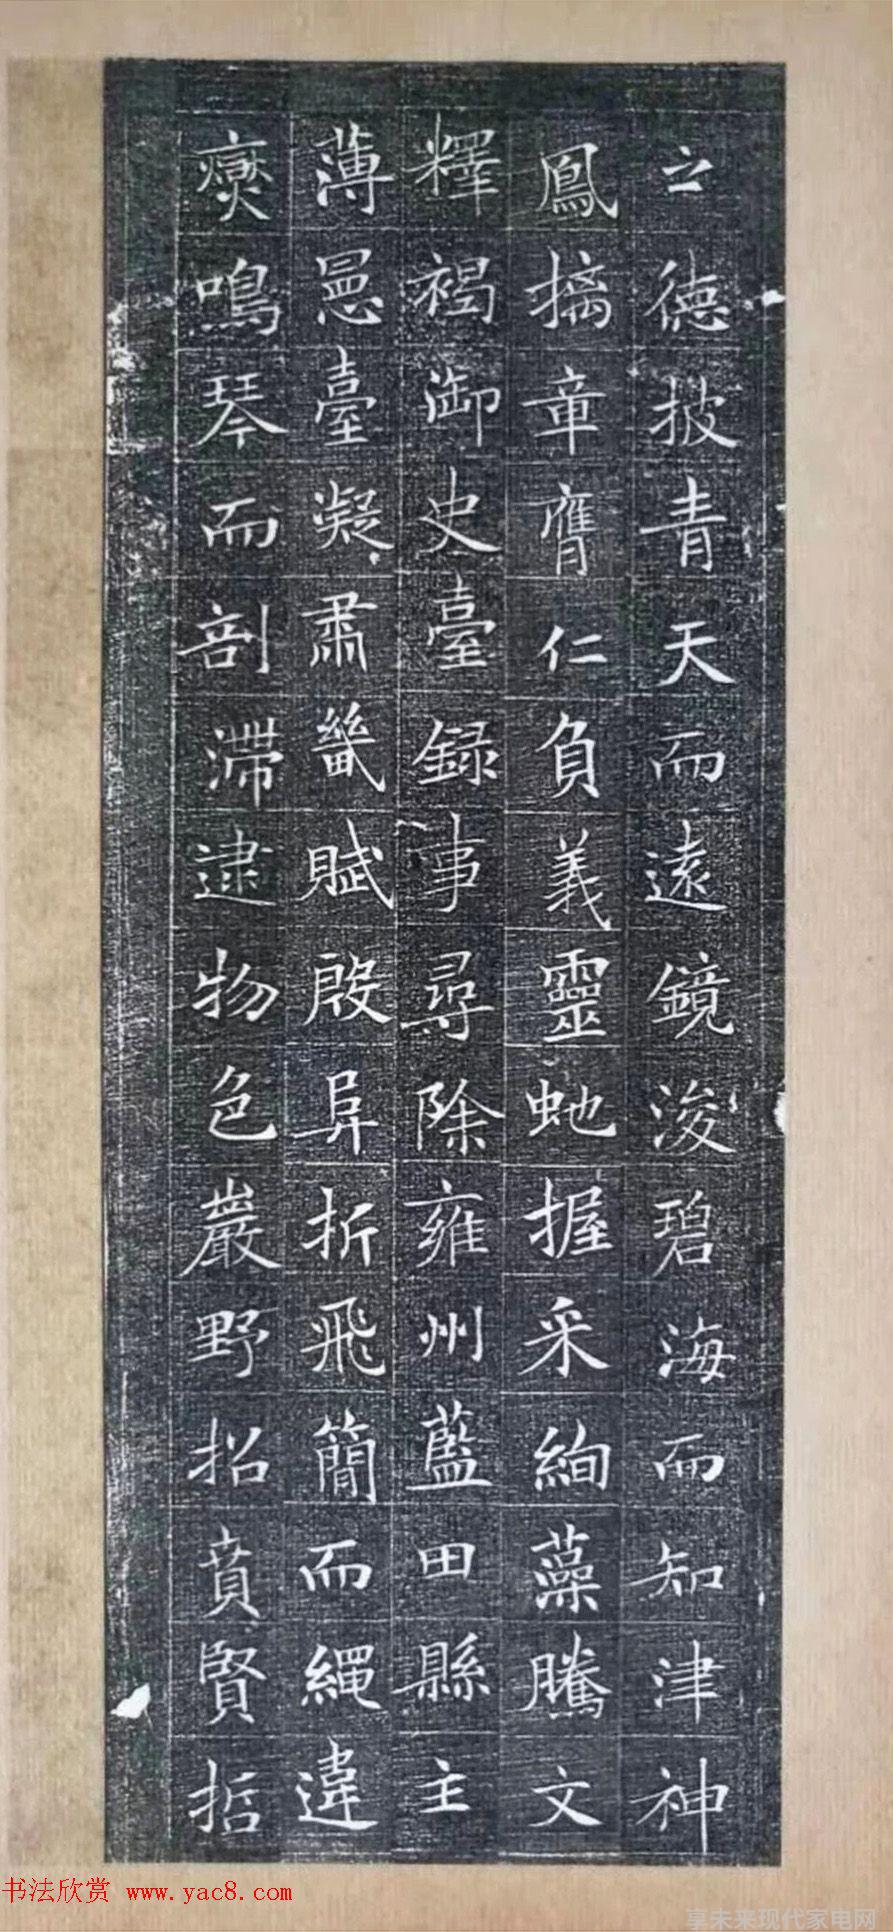 之德披青天而遠鏡浚碧海而知津神
鳳摛章膺仁負義靈虵握采絢藻騰文
釋褐御史臺錄事尋除雍州藍田縣主
薄臺凝肅畿賦殷異折飛簡而繩違
鳴琴而剖滯逮物色巖野招賁賢哲
书法欣赏 www.yac8.com
享未来现代家电网